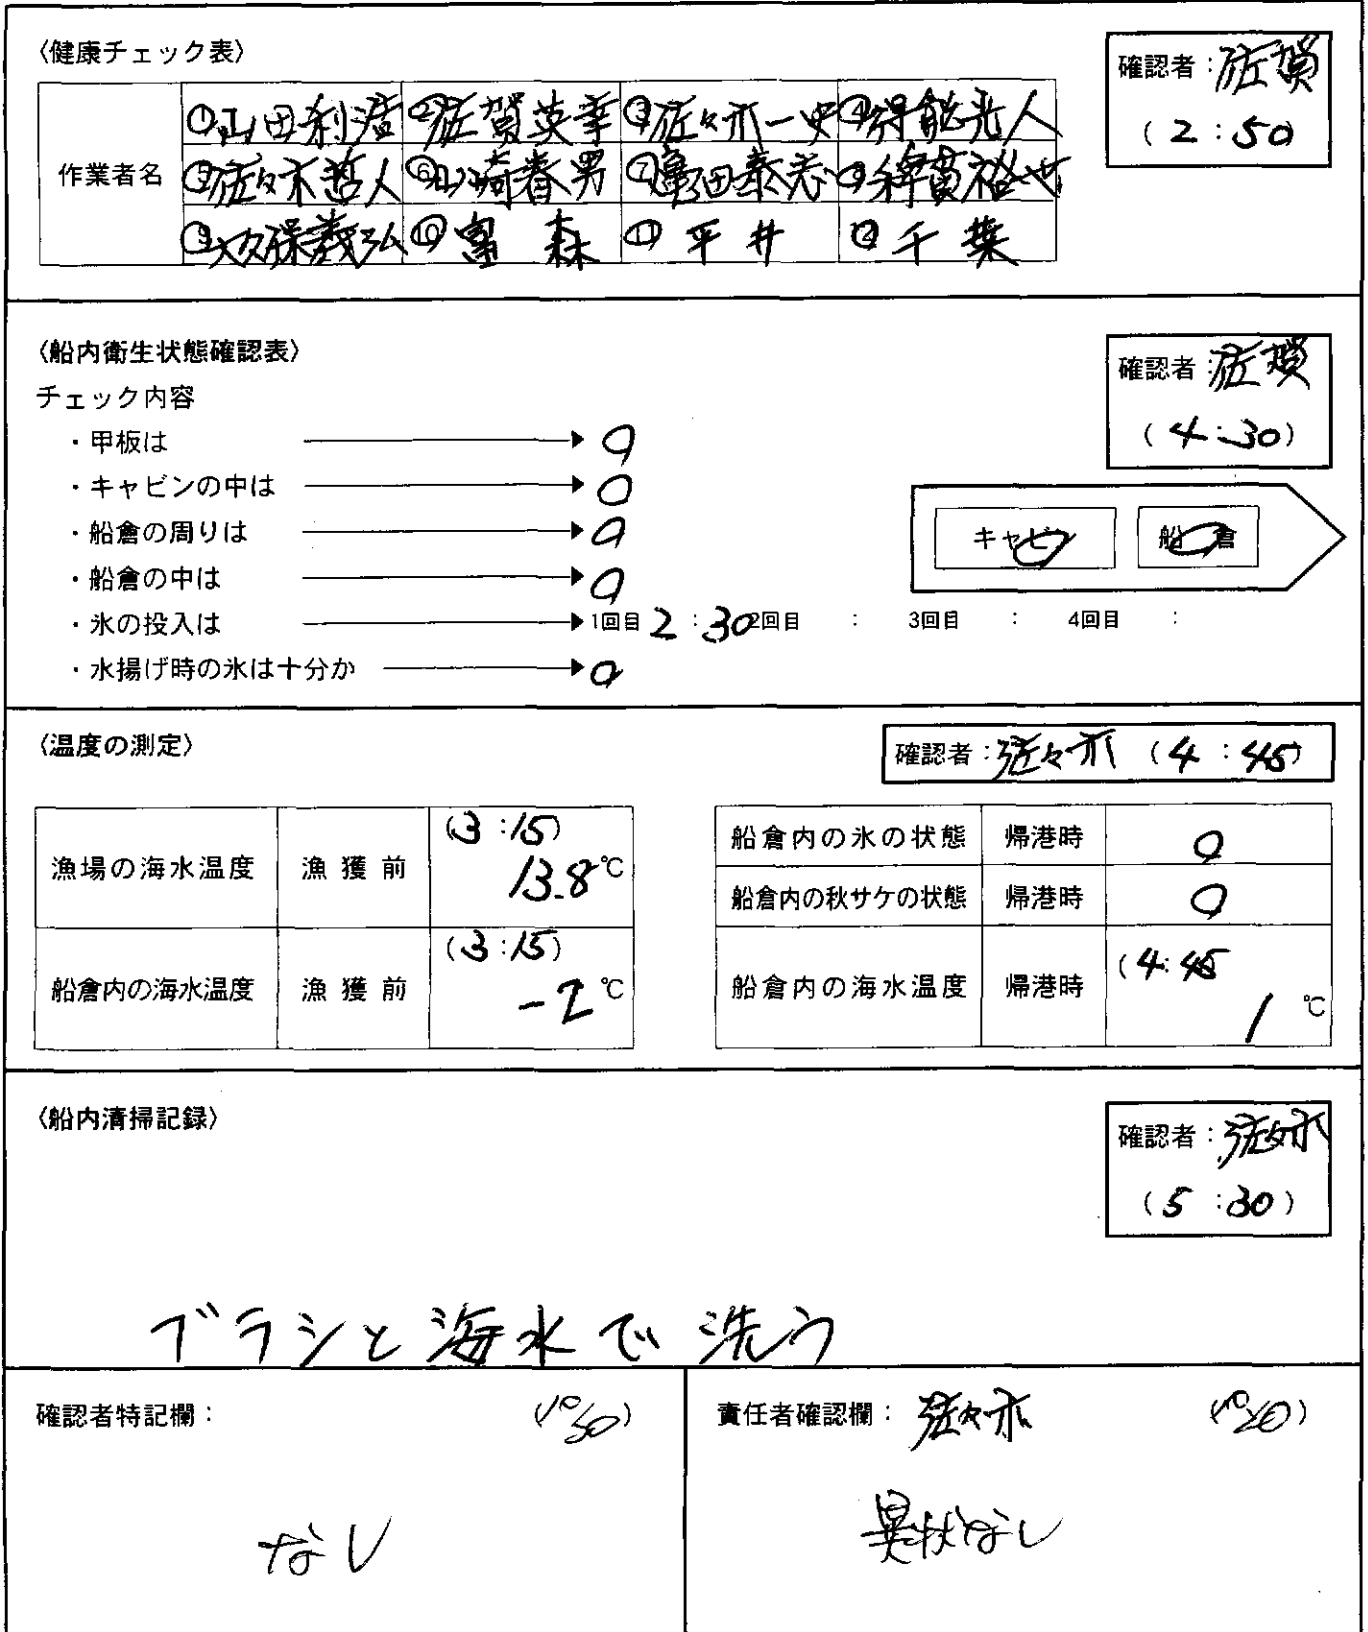 〈健康チェック表〉
確認者：佐賀
(2:50)
作業者名
①山田利浩 ②佐賀英幸 ③佐々木一史 ④得能光人
⑤佐々木哲人 ⑥山崎春男 ⑦亀田泰志 ⑧綿貫裕
⑨大久保義弘 ⑩富森 ⑪平井 ⑫千葉
〈船内衛生状態確認表〉
確認者：佐賀
(4:30)
チェック内容
・甲板は ○
・キャビンの中は ○
・船倉の周りは ○
キャビン 船倉
・船倉の中は ○
・氷の投入は 1回目 2:30 2回目 : 3回目 : 4回目 :
・水揚げ時の氷は十分か ○
〈温度の測定〉
確認者：佐々木 (4:45)
漁場の海水温度 漁獲前 (3:15) 13.8℃
船倉内の海水温度 漁獲前 (3:15) -2℃
船倉内の氷の状態 帰港時 ○
船倉内の秋サケの状態 帰港時 ○
船倉内の海水温度 帰港時 (4:45 1℃
〈船内清掃記録〉
確認者：佐々木
(5:30)
ブラシと海水で洗う
確認者特記欄：
なし
責任者確認欄：佐々木
異状なし